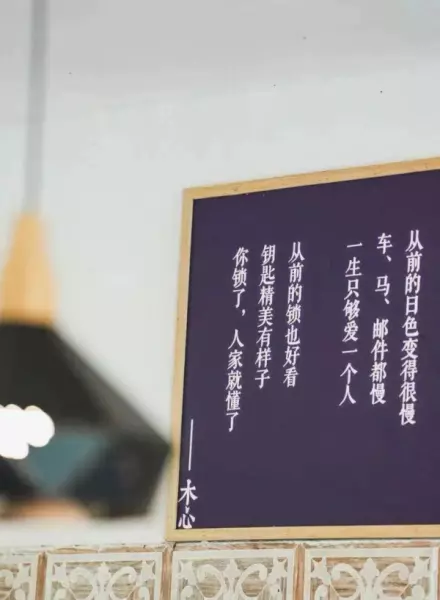 从前的日色变得很慢
车、马、邮件都慢
一生只够爱一个人
从前的锁也好看
钥匙精美有样子
你锁了，人家就懂了
——木心